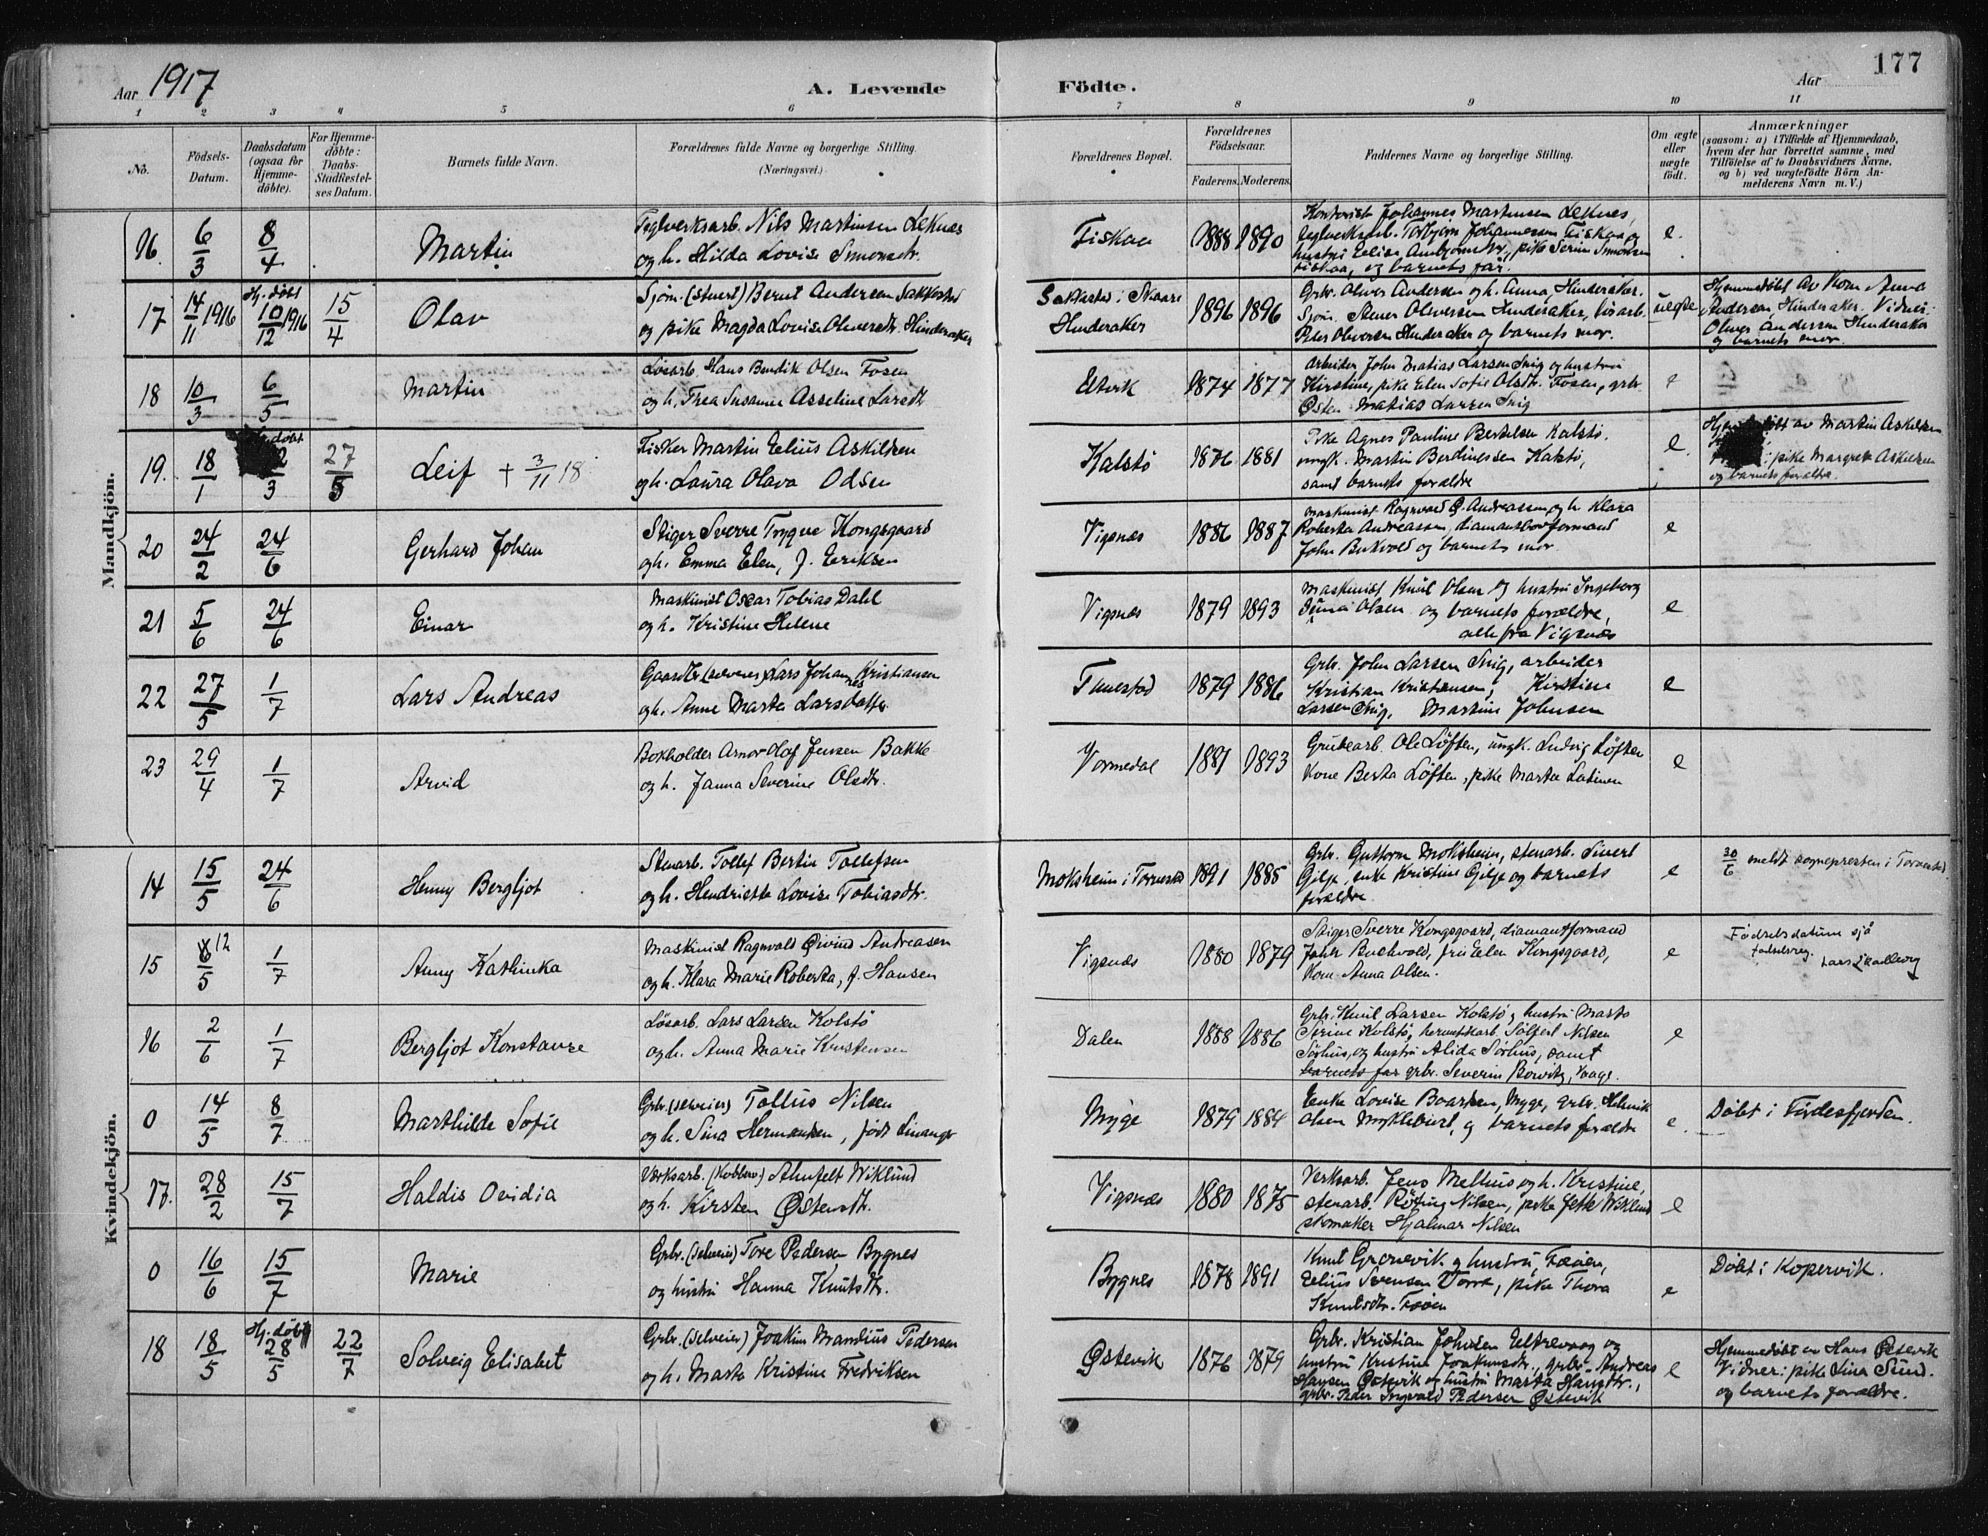 Aar 1917
A. Levende
Födte.
Aar
177
1 2 3 4 5 6 7 8 9 10 11
No.
Födsels-
Datum.
Daabsdatum
(ogsaa for
Hjemme-
döbte).
For Hjemme-
döbte:
Daabs-
Stadfæstel-
ses Datum.
Barnets fulde Navn.
Forældrenes fulde Navne og borgerlige Stilling.
(Næringsvei.)
Forældrenes Bopæl.
Forældrenes
Födselsaar.
Faderens. Moderens.
Faddernes Navne og borgerlige Stilling.
Om ægte
eller
uægte
födt.
Anmærkninger
(saasom: a) i Tilfælde af Hjemmedaab,
hvem der har forrettet samme, med
Tilföielse af to Daabsvidners Navne,
og b) ved uægtefödte Börn An-
melderens Navn m. V.)
Mandkjön.
16 6/3 8/4 Martin
Teglverksarb. Nils Martinsen Leknes
og h. Hilda Lovise Simonsdtr.
Fiskaa 1888 1890
Kontorist Johannes Martinsen Leknes,
teglverksarb. Torbjørn Johannessen Fiskaa og
hustru Elise, pike Serine Simonsen
Fiskaa, og barnets far.
e.
17 14/11 1916 Hj. døbt 10/12 1916 15/4 Olav
Sjøm. (stuert) Bernt Andersen Sakkestad
og pike Magda Lovise Oliversdtr. Hinderaker
Sakkestad i Skaare
Hinderaker
1896 1896
Grbr. Oliver Andersen og h. Anna, Hinderaker.
Sjøm. Stener Oliversen Hinderaker, løsarb.
Peder Oliversen Hinderaker og barnets mor.
uegte
Hjemmedøbt av Kone Anna
Andersen, Hinderaker. Vidner:
Oliver Andersen Hinderaker
og barnets mor.
18 10/3 6/5 Martin
Løsarb. Hans Bendik Olsen Fosen
og h. Thea Susanne Asseline Larsdtr.
Eltevik 1874 1877
Arbeider John Matias Larsen Snig og hustru
Kirstine, pike Elen Sofie Olsdtr. Fosen, grbr.
Østen Matias Larsen Snig
e
19. 18/1 Hj. døbt /3 27/5 Leif + 3/11 18
Fisker Martin Elius Askildsen
og h. Laura Olava Odsen
Kalstø 1876 1881
Pike Agnes Pauline Bertelsen Kalstø.
ungk. Martin Berdinessen Kalstø,
samt barnets forældre
e.
Hjemmedøbt av Martin Askildsen
: pike Margrete Askildsen
og barnets forældre.
20 24/2 24/6 Gerhard Johan
Stiger Sverre Trygve Kongsgaard
og h. Emma Elen, f. Eriksen
Vigsnæs 1886 1887
Maskinist Ragnvald Ø. Andreassen og h. Klara
Roberta Andreassen, diamantborformand
John Bukvold og barnets mor.
e
21 5/6 24/6 Einar
Maskinist Oscar Tobias Dahl
og h. Kristine Helene
Vigsnæs 1879 1893
Maskinist Knut Olsen og hustru Ingeborg
Olsen og barnets forældre,
alle fra Vigsnæs
e
22 27/5 1/7 Lars Andreas
Gaardbr. (selveier) Lars Johannes Kristiansen
og h. Anne Marta Larsdatter
Tunestad 1879 1886
Grbr. John Larsen Snig, arbeider
Kristian Kristiansen, Kirstine
Larsen Snig, Martine Johnsen
e
23 29/4 1/7 Arvid
Bokholder Arnor Olaf Jensen Bakke
og h. Janna Severine Olsdtr.
Vormedal 1881 1893
Grubearb. Ole Løften, ungk. Ludvig Løften
Kone Berta Løften, pike Marta
e
Kvindekjön.
14 15/5 24/6 Henny Bergljot
Stenarb. Tollef Bertin Tollefsen
og h. Hendriette Lovise Tobiasdtr.
Moksheim i Torvestad 1891 1885
Grbr. Guttorm Moksheim, stenarb. Sivert
Gilje, enke Kristine Gilje og barnets
forældre.
e
30/6 meldt sogneprestem i Torvestad.
15 12/5 1/7 Anny Kathinka
Maskinist Ragnvald Øivind Andreasen
og h. Klara Marie Roberta, f. Hansen
Vigsnæs 1880 1879
Stiger Sverre Kongsgaard, diamantformand
John Buchvold, fru Elen Kongsgaard,
Kone Anna Olsen.
e
Fødselsdatum
fødselsreg.
Lars
16 2/6 1/7 Bergljot Konstanse
Løsarb. Lars Larsen Kolstø
og h. Anna Marie Kristensen
Dalen 1888 1886
Grbr. Knut Larsen Kolstø og hustru Marta
Serine Kolstø, hermetikarb. Nilsen
Sørhus, og hustru Alida Sørhus, samt
barnets far grbr. Severin Vaage.
e
0 14/5 8/7 Marthilde Sofie
Grbr. (selveier) Tollius Nilsen
og h. Sina Hermansen, født Linanger
Myge 1879 1884
Enke Lovise Boardsen, Myge, grbr. Henrik
Olsen Myklebust, og barnets forældre
e.
Døbt i Førdesfjorden.
17. 28/2 15/7 Haldis Ovidia
Værksarb. Alnfelt Wiklund
og h. Kirsten Østensdtr.
Vigsnæs 1880 1875
Verksarb. Jens Melhus og h. Kristine,
stenarb. Nilsen, pike Jette Wiklund
skomaker Hjalmar Nilsen
e
0 16/6 15/7 Marie
Grbr. (selveier) Tore Pedersen Bygnes
og hustru Hanna Knutsdtr.
Bygnes 1878 1891
Knut Grønevik og hustru, Fæøen,
Elius Svensen Vorre, pike Thora
Knutsdtr. Fæøen
e
Døbt i Kopervik.
18 18/5 Hj. døbt 28/5 22/7 Solveig Elisabet
Grbr. (selveier) Joakim Mandius Pedersen
og h. Marta Kristine Fredriksen
Østevik 1876 1879
Grbr. Kristian Johnsen Eltrevaag og
hustru Kristine Joakimsdtr., grbr. Andreas
Hansen Østevik og hustru Marta Hansdtr.,
grbr. Peder Ingvald Pedersen Østevik
e
Hjemmedøbt av Hans Østevik
Vidner: pike Lina Sund.
og barnets forældre.